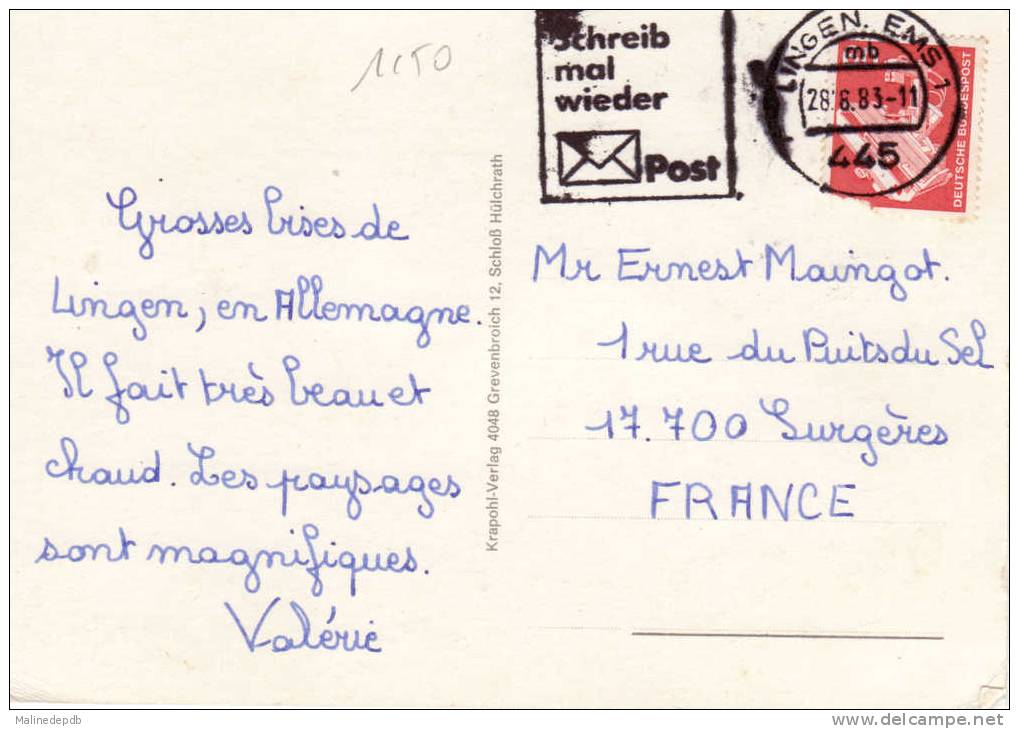 1150
Schreib
mal
wieder
Post
LINGEN, EMS 1
mb
28.6.83-11
445
DEUTSCHE BUNDESPOST
Grosses bises de
Lingen, en Allemagne.
Il fait très beau et
chaud. Les paysages
sont magnifiques.
Valérie
Krapohl-Verlag 4048 Grevenbroich 12, Schloß Hülchrath
Mr Ernest Maingot.
1 rue du Puits du Sel
17.700 Surgères
FRANCE
Malinedepdb
www.delcampe.net